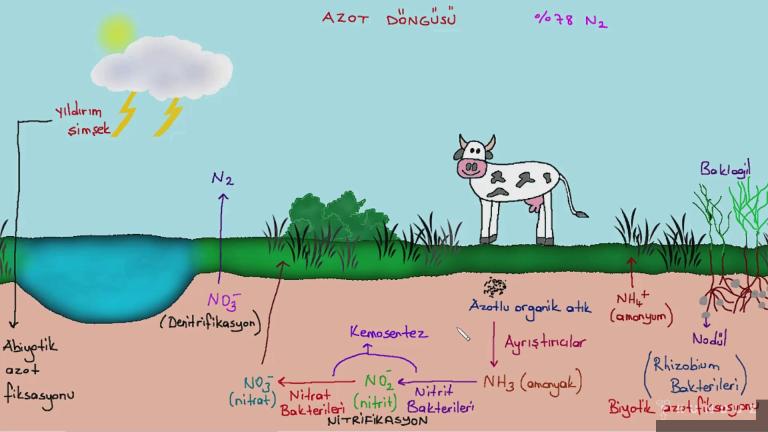 AZOT DÖNGÜSÜ %78 N₂
yıldırım
şimşek
N₂
Baklagil
NO₃⁻
(Denitrifikasyon)
Azotlu organik atık
NH₄⁺
(amonyum)
Kemosentez
Ayrıştırıcılar
Nodül
Abiyotik
azot
fiksasyonu
(Rhizobium
Bakterileri)
NO₃⁻
(nitrat)
Nitrat
Bakterileri
NO₂⁻
(nitrit)
Nitrit
Bakterileri
NH₃ (amonyak)
Biyotik azot fiksasyonu
NİTRİFİKASYON